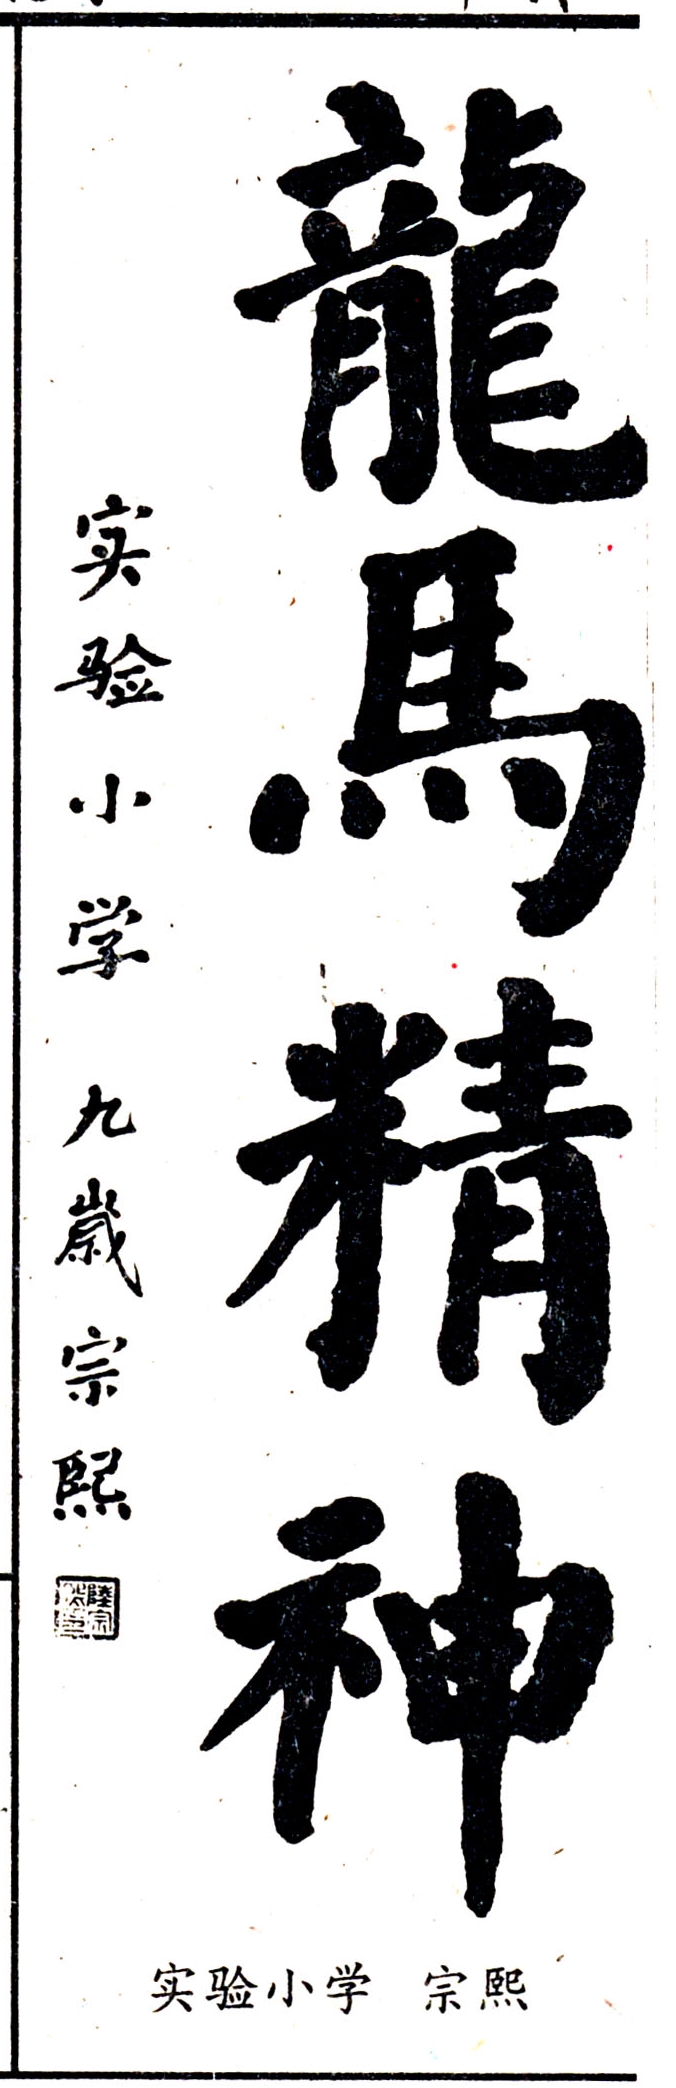 龍馬精神
实验小学 九歲宗熙
实验小学 宗熙